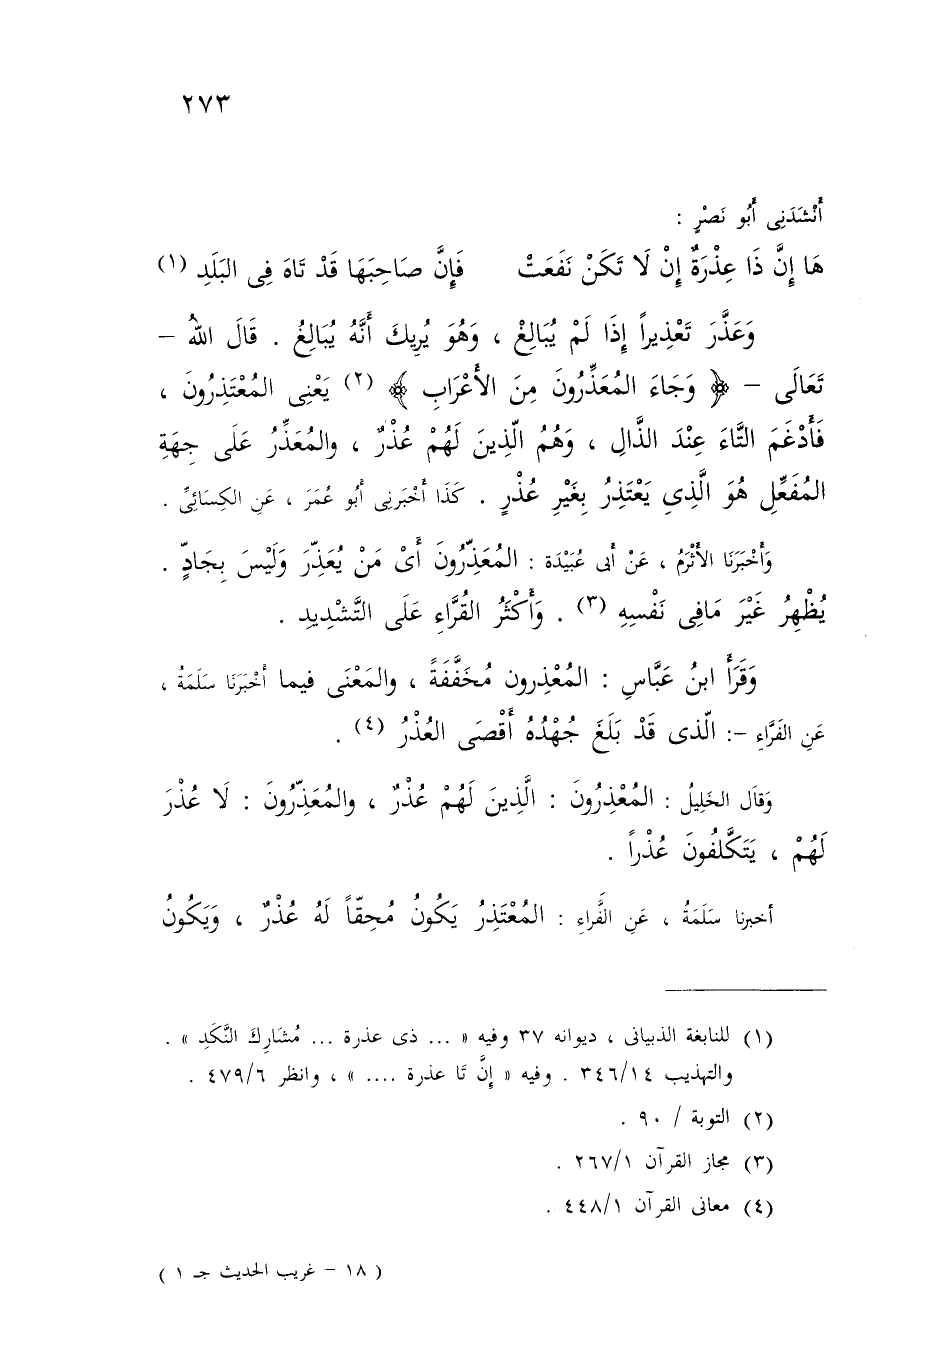 ٢٧٣
أَنْشَدَنِى أَبُو نَصْرٍ :
هَا إِنَّ ذَا عِذْرَةٌ إِنْ لَا تَكَنْ نَفَعَتْ فَإِنَّ صَاحِبَهَا قَدْ تَاهَ فِى البَلَدِ (١)
وَعَذَّرَ تَعْذِيراً إِذَا لَمْ يُبَالِغْ ، وَهُوَ يُرِيكَ أَنَّهُ يُبَالِغُ . قَالَ اللهُ –
تَعَالَى – ﴿ وَجَاءَ المُعَذِّرُونَ مِنَ الأَعْرَابِ ﴾ (٢) يَعْنِى المُعْتَذِرُونَ ،
فَأَدْغَمَ التَّاءَ عِنْدَ الذَّالِ ، وَهُمُ الَّذِينَ لَهُمْ عُذْرٌ ، والمُعَذِّرُ عَلَى جِهَةِ
المُفَعِّلِ هُوَ الَّذِى يَعْتَذِرُ بِغَيْرِ عُذْرٍ . كَذَا أَخْبَرَنِى أَبُو عُمَرَ ، عَنِ الكِسَائِىِّ .
وَأَخْبَرَنَا الأَثْرَمُ ، عَنْ أَبى عُبَيْدَة : المُعَذِّرُونَ أَىْ مَنْ يُعَذِّرَ وَلَيْسَ بِجَادٍّ .
يُظْهِرُ غَيْرَ مَافِى نَفْسِهِ (٣) . وَأَكْثَرُ القُرَّاءِ عَلَى التَّشْدِيدِ .
وَقَرَأَ ابنُ عَبَّاسٍ : المُعْذِرون مُخَفَّفَةً ، والمَعْنَى فيما أخْبَرَنَا سَلَمَةُ ،
عَنِ الفَرَّاءِ –: الّذى قَدْ بَلَغَ جُهْدُهُ أَقْصَى العُذْرُ (٤) .
وَقاَل الخَلِيلُ : المُعْذِرُونَ : الَّذِينَ لَهُمْ عُذْرٌ ، والمُعَذِّرُونَ : لَا عُذْرَ
لَهُمْ ، يَتَكَّلفُونَ عُذْراً .
أخبرنا سَلَمَةُ ، عَنِ الفَّراءِ : المُعْتَذِرُ يَكُونُ مُحِقّاً لَهُ عُذْرٌ ، وَيَكُونُ
(١) للنابغة الذبيانى ، ديوانه ٣٧ وفيه « ... ذى عذرة ... مُشارِكَ النَّكَدِ » .
والتهذيب ٣٤٦/١٤ . وفيه « إنَّ تَا عذرة .... » ، وانظر ٤٧٩/٦ .
(٢) التوبة / ٩٠ .
(٣) مجاز القرآن ٢٦٧/١ .
(٤) معانى القرآن ٤٤٨/١ .
( ١٨ – غريب الحديث جـ ١ )